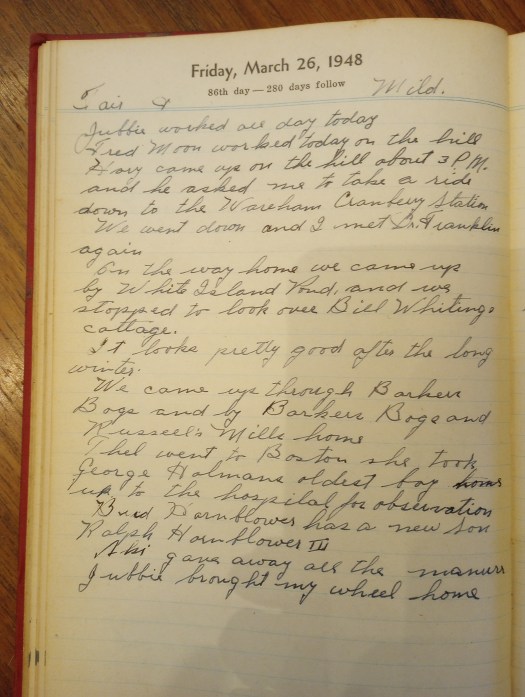 Friday, March 26, 1948
86th day — 280 days follow
Fair & Mild.
Jubbie worked all day today
Fred Moon worked today on the hill
Harv came up on the hill about 3 P.M.
and he asked me to take a ride
down to the Wareham Cranbery Station
We went down and I met Dr. Franklin
again
On the way home we came up
by White Island Pond, and we
stopped to look over Bill Whitings
cottage.
It looks pretty good after the long
winter.
We came up through Barkers
Bogs and by Barkers Bogs and
Russeel's Mills home
Thel went to Boston she took
George Holmans oldest boy
up to the hospital for observation
Bud Hornblower has a new son
Ralph Hornblower III
gave away all the manure
Jubbie brought my wheel home